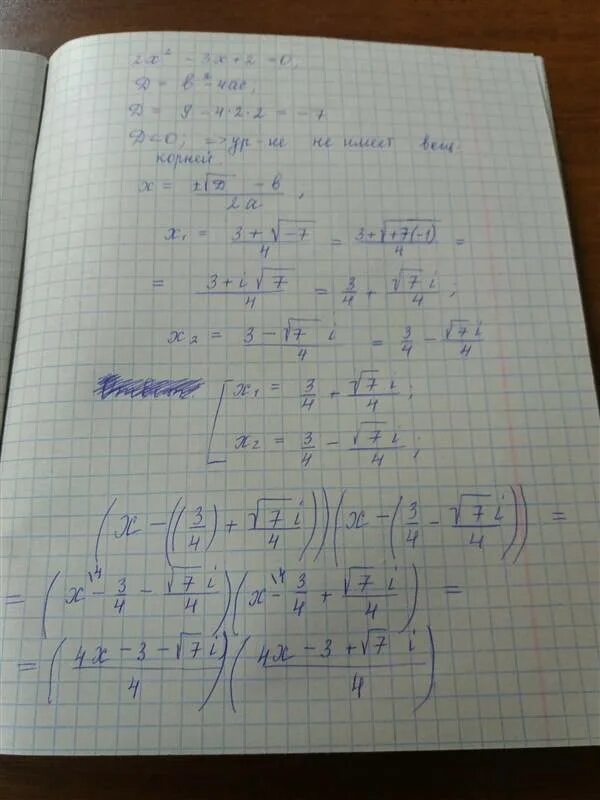 2x² - 3x + 2 = 0;
D = в² - 4ac;
D = 9 - 4·2·2 = -7
D<0; => ур-ие не имеет вещ.
корней.
x = (±√D - в)/2a ;
x₁ = (3 + √-7)/4 = (3 + √+7(-1))/4 =
= (3 + i√7)/4 = 3/4 + √7 i/4 ;
x₂ = (3 - √7 i)/4 = 3/4 - √7 i/4
[ x₁ = 3/4 + √7 i/4 ;
x₂ = 3/4 - √7 i/4 ;
(x - ((3/4) + √7 i/4))(x - (3/4 - √7 i/4)) =
= (x\⁴ - 3/4 - √7 i/4)(x\⁴ - 3/4 + √7 i/4) =
= ((4x - 3 - √7 i)/4)((4x - 3 + √7 i)/4)